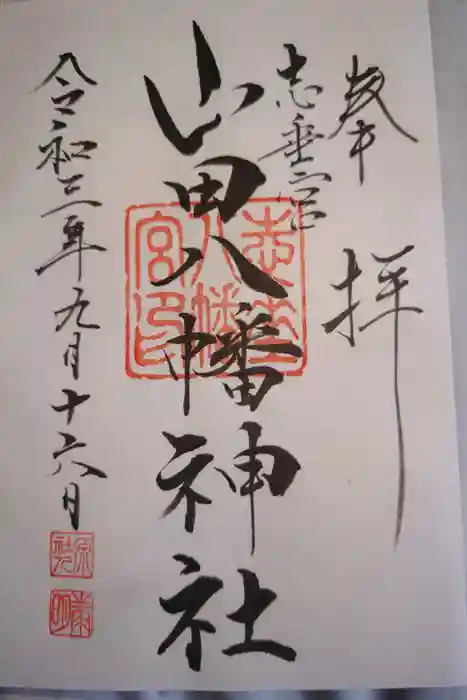 奉拝
志垂宮
山田八幡神社
令和三年九月十六日
志垂八幡宮印